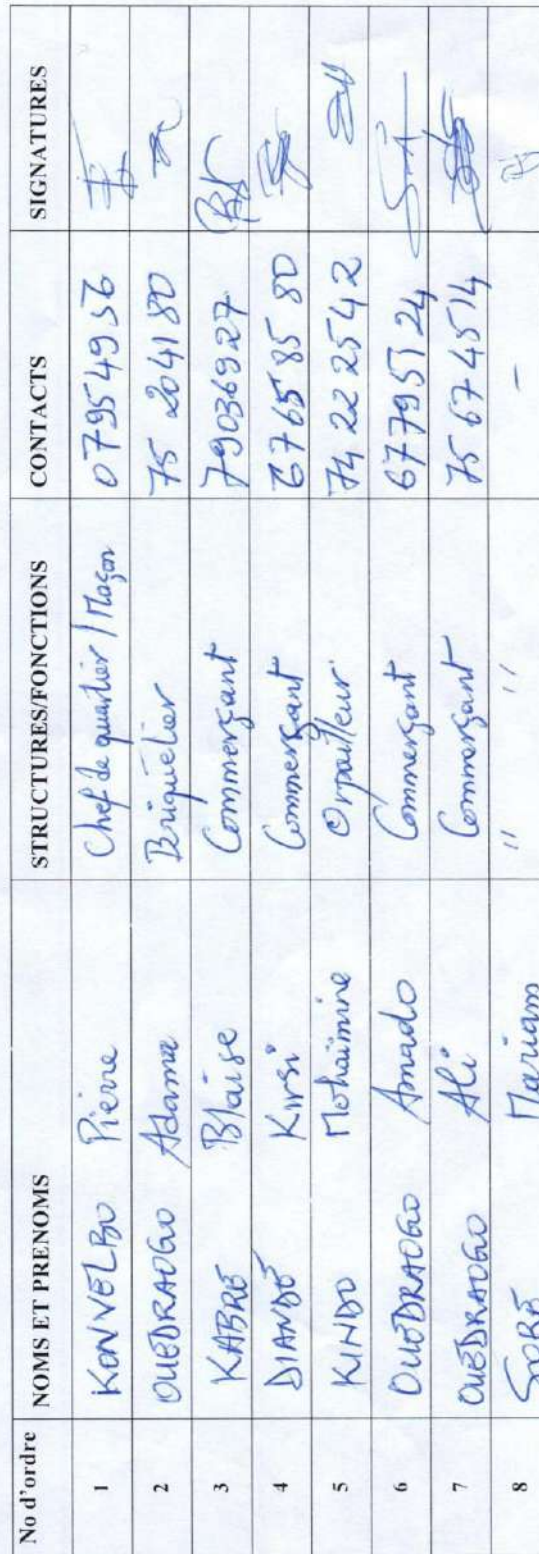 No d'ordre NOMS ET PRENOMS STRUCTURES/FONCTIONS CONTACTS SIGNATURES
1 KONVELBO Pierre Chef de quartier / Maçon 07954956
2 OUEDRAOGO Adama Briquetier 75 204180
3 KABRÉ Blaise Commerçant 79036927
4 DIANDÉ Kirsi Commerçant 6765 85 80
5 KINDO Mohaïmine Orpailleur 74 22 2542
6 OUEDRAOGO Amado Commerçant 67795124
7 OUEDRAOGO Ali Commerçant 75 674514
8 SORÉ Mariam " " -